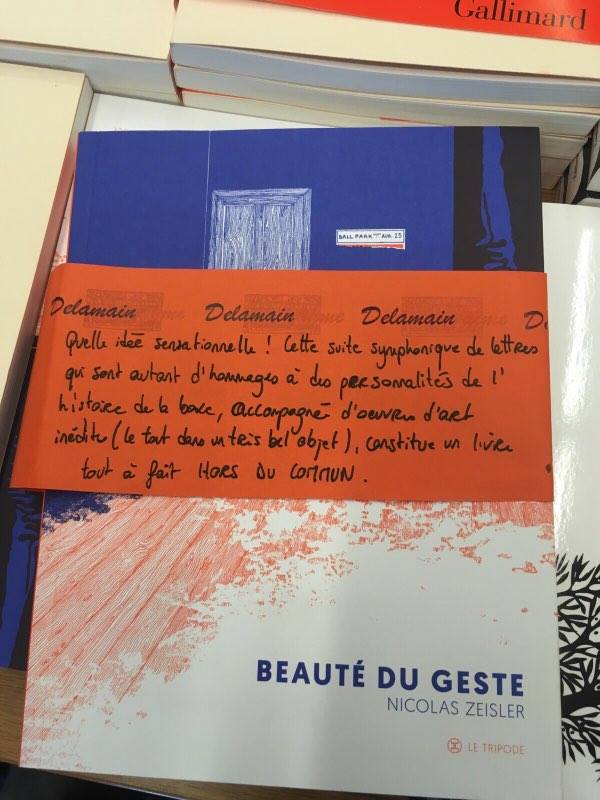 Gallimard
BALL PARK AUG. 25
Delamain Delamain Delamain D
Quelle idée sensationnelle ! Cette suite symphonique de lettres
qui sont autant d'hommages à des personnalités de l'
histoire de la boxe, accompagné d'oeuvres d'art
inédites (le tout dans un très bel objet), constitue un livre
tout à fait HORS DU COMMUN.
BEAUTÉ DU GESTE
NICOLAS ZEISLER
LE TRIPODE